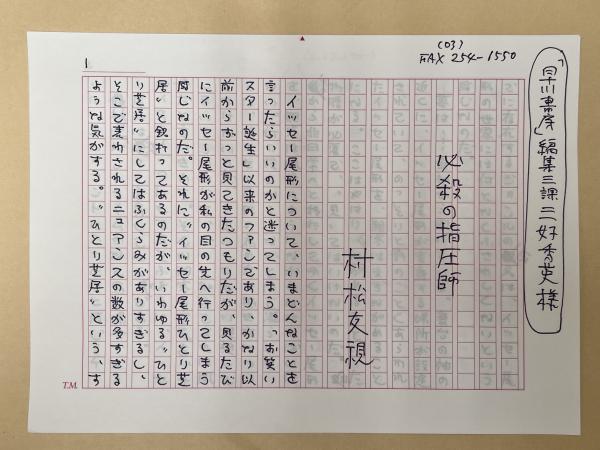 (03)
FAX 254-1550
「早川書房」編集三課 三好秀英様
1
必殺の指圧師
村松友視
イッセー尾形について、いまどんなことを
言ったらいいのかと迷ってしまう。「お笑い
スター誕生」以来のファンであり、かなり以
前からずっと見てきたつもりだが、見るたび
にイッセー尾形が私の目の先へ行ってしまう
感じなのだ。それに〝イッセー尾形ひとり芝
居〟と銘打ってあるのだが、いわゆる〝ひと
り芝居〟にしてはふくらみがありすぎるし、
そこで表わされるニュアンスの数が多すぎる
ような気がする。〝ひとり芝居〟という、す
T.M.